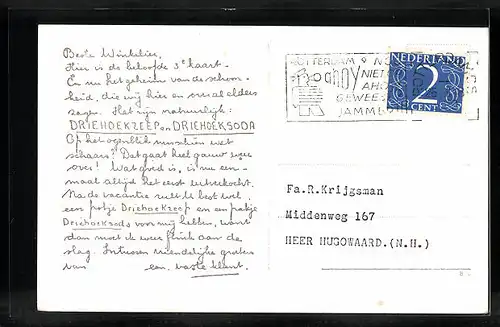 Beste Winkelier,
Hier is de beloofde 3e kaart.
En nu het geheim van de schoon-
heid, die wij hier en overal elders
zagen. Het zijn natuurlijk:
DRIEHOEKZEEP en DRIEHOEKSODA
Op het ogenblik misschien wat
schaars? Dat gaat heel gauw weer
over! Wat goed is, is nu een-
maal altijd het eerst uitverkocht.
Na de vacantie wilt U best wel
een pakje Driehoekzeep en een pakje
Driehoeksoda voor mij hebben, want
dan moet ik weer flink aan de
slag. Intussen vriendelijke groeten
van een vaste klant.
ROTTERDAM
ahoy
NIET
AHO
GEWEES
JAMMER
NEDERLAND
2
CENT
Fa.R.Krijgsman
Middenweg 167
HEER HUGOWAARD.(N.H.)